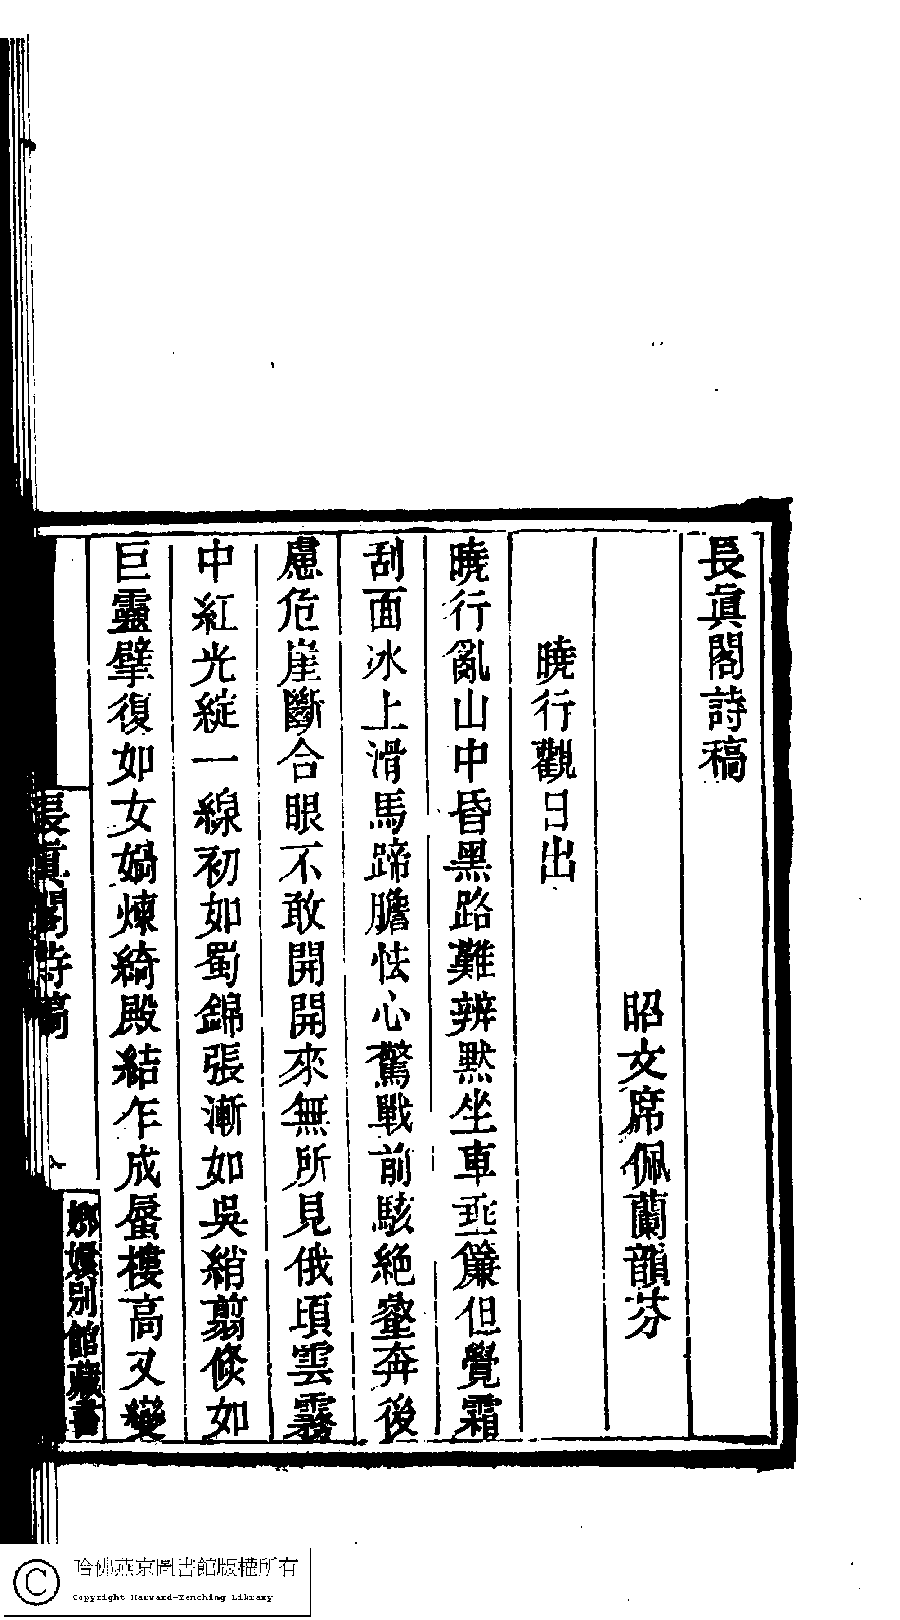 長眞閣詩稿
昭文席佩蘭韻芬
曉行觀日出
曉行亂山中昏黑路難辨默坐車垂簾但覺霜
刮面冰上滑馬蹄膽怯心驚戰前駭絕壑奔後
慮危崖斷合眼不敢開開來無所見俄頃雲霧
中紅光綻一線初如蜀錦張漸如吳綃翦倏如
巨靈擘復如女媧煉綺殿結乍成蜃樓高又變
長眞閣詩稿
一
嫏嬛別館藏書
哈佛燕京圖書館版權所有
Copyright Harvard-Yenching Library